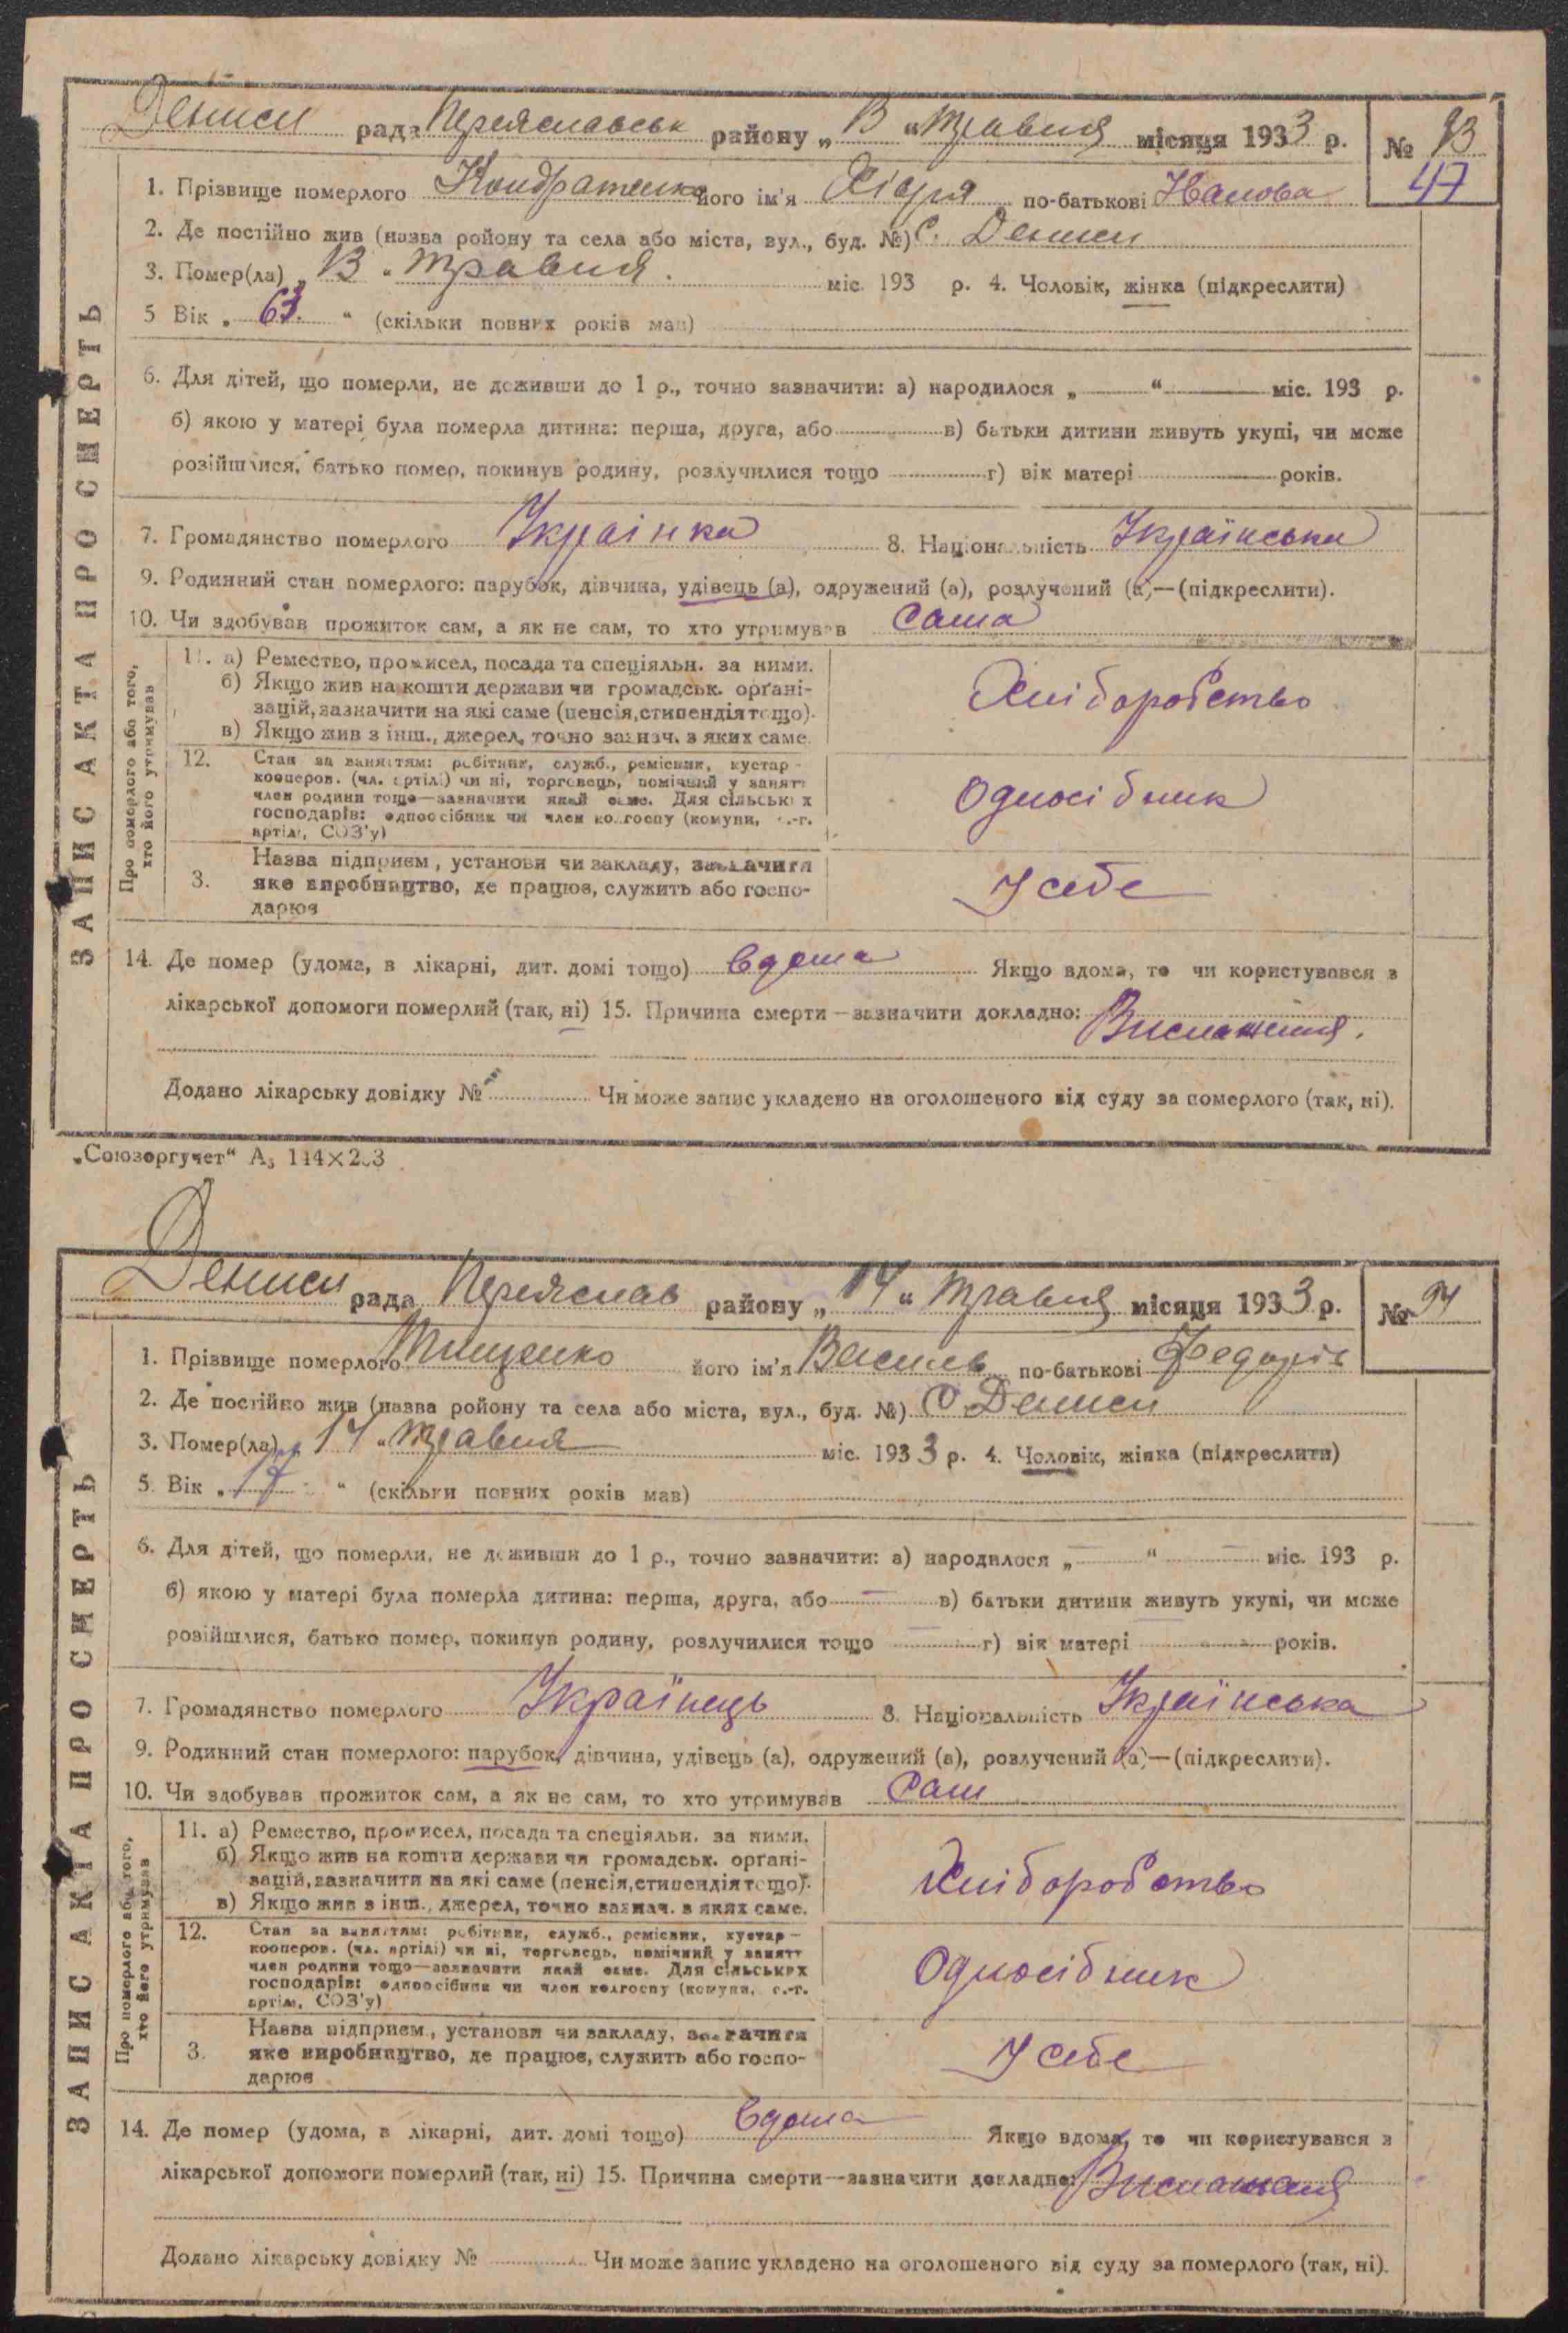 Дениси рада Переяславськ району „13“ травня місяця 1933 р. № 93
47
1. Прізвище померлого Кондратенко його ім'я по-батькові
2. Де постійно жив (назва ройону та села або міста, вул., буд. №) с. Дениси
3. Помер(ла) „13“ травня. міс. 193 р. 4. Чоловік, жінка (підкреслити)
5 Вік „63.“ (скільки повних років мав)
6. Для дітей, що померли, не доживши до 1 р., точно зазначити: а) народилося „ “ міс. 193 р.
б) якою у матері була померла дитина: перша, друга, або в) батьки дитини живуть укупі, чи може
розійшлися, батько помер, покинув родину, розлучилися тощо г) вік матері років.
7. Громадянство померлого Українка 8. Національність Українська
9. Родинний стан померлого: парубок, дівчина, удівець (а), одружений (а), розлучений (а)—(підкреслити).
10. Чи здобував прожиток сам, а як не сам, то хто утримував Сама
ЗАПИС АКТА ПРО СМЕРТЬ
Про померлого або того, хто його утримував
11. а) Ремество, промисел, посада та спеціяльн. за ними.
б) Якщо жив на кошти держави чи громадськ. орґані-
зацій, зазначити на які саме (пенсія, стипендія тощо).
в) Якщо жив з інш., джерел, точно зазнач. з яких саме.
Хліборобство
12. Стан за заняттям: робітник, служб., ремісник, кустар -
кооперов. (чл. артілі) чи ні, торговець, помічний у занятт
член родини тощо—зазначити який саме. Для сільських
господарів: одноосібник чи член колгоспу (комуни, с.-г.
артілі, СОЗ'у)
Односібник
3. Назва підприєм., установи чи закладу, зазначити
яке виробництво, де працює, служить або госпо-
дарює
У себе
14. Де помер (удома, в лікарні, дит. домі тощо) вдома Якщо вдома, то чи користувався з
лікарської допомоги померлий (так, ні) 15. Причина смерти—зазначити докладно: Виснаження.
Додано лікарську довідку № Чи може запис укладено на оголошеного від суду за померлого (так, ні).
„Союзоргучет“ А₅ 144×203
Дениси рада Переяслав району „14“ травня місяця 1933 р. № 94
1. Прізвище померлого Тищенко його ім'я Василь по-батькові Федорів
2. Де постійно жив (назва ройону та села або міста, вул., буд. №) С Дениси
3. Помер(ла) „14“ травня міс. 1933 р. 4. Чоловік, жінка (підкреслити)
5. Вік „17“ (скільки повних років мав)
6. Для дітей, що померли, не доживши до 1 р., точно зазначити: а) народилося „ “ міс. 193 р.
б) якою у матері була померла дитина: перша, друга, або в) батьки дитини живуть укупі, чи може
розійшлися, батько помер, покинув родину, розлучилися тощо г) вік матері років.
7. Громадянство померлого Українець 8. Національність Українська
9. Родинний стан померлого: парубок, дівчина, удівець (а), одружений (а), розлучений (а)—(підкреслити).
10. Чи здобував прожиток сам, а як не сам, то хто утримував Сам
ЗАПИС АКТА ПРО СМЕРТЬ
Про померлого або того, хто його утримував
11. а) Ремество, промисел, посада та спеціяльн. за ними.
б) Якщо жив на кошти держави чи громадськ. орґані-
зацій, зазначити на які саме (пенсія, стипендія тощо).
в) Якщо жив з інш., джерел, точно зазнач. з яких саме.
Хліборобство
12. Стан за заняттям: робітник, служб., ремісник, кустар -
кооперов. (чл. артілі) чи ні, торговець, помічний у занятт
член родини тощо—зазначити який саме. Для сільських
господарів: одноосібник чи член колгоспу (комуни, с.-г.
артілі, СОЗ'у)
Односібник
3. Назва підприєм., установи чи закладу, зазначити
яке виробництво, де працює, служить або госпо-
дарює
У себе
14. Де помер (удома, в лікарні, дит. домі тощо) вдома Якщо вдома, то чи користувався з
лікарської допомоги померлий (так, ні) 15. Причина смерти—зазначити докладно: Виснаження
Додано лікарську довідку № Чи може запис укладено на оголошеного від суду за померлого (так, ні).